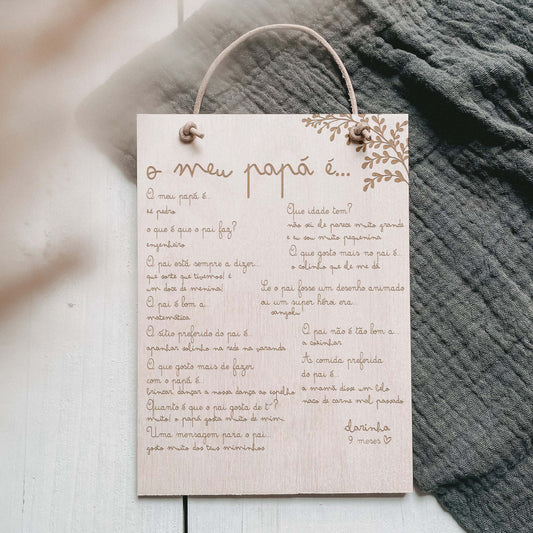 o meu papá é...
O meu papá é...
zé pedro
o que é que o pai faz?
engenheiro
O pai está sempre a dizer...
que sorte que tivemos! é
um doce de menina!
O pai é bom a...
matemática
O sítio preferido do pai é...
apanhar solinho na rede na varanda
O que gosto mais de fazer
com o papá é...
brincar, dançar a nossa dança ao espelho
Quanto é que o pai gosta de ti?
muito! o papá gosta muito de mim
Uma mensagem para o pai...
gosto muito dos teus miminhos
Que idade tem?
não sei ele parece muito grande
e eu sou muito pequenina
O que gosto mais no pai é...
o colinho que ele me dá
Se o pai fosse um desenho animado
ou um super héroi era...
songoku
O pai não é tão bom a...
a cozinhar
A comida preferida
do pai é...
a mamã disse um belo
naco de carne mal passado
clarinha
9 meses